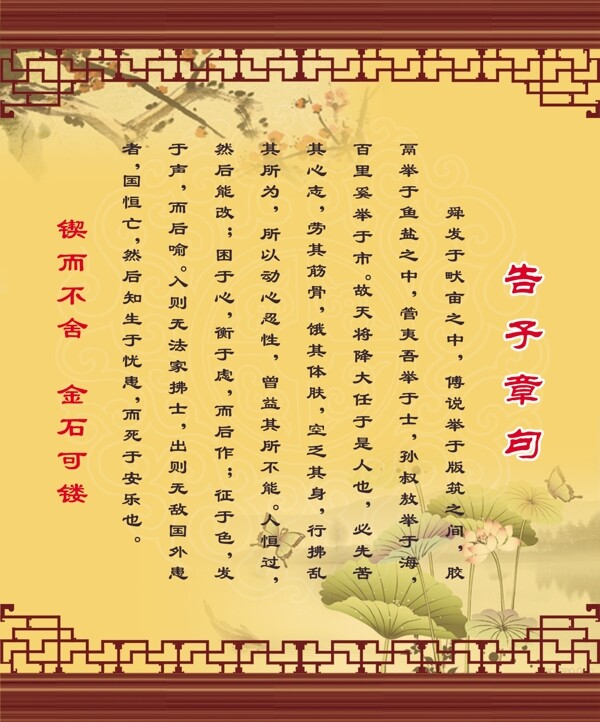 告子章句
舜发于畎亩之中，傅说举于版筑之间，胶
鬲举于鱼盐之中，管夷吾举于士，孙叔敖举于海，
百里奚举于市。故天将降大任于是人也，必先苦
其心志，劳其筋骨，饿其体肤，空乏其身，行拂乱
其所为，所以动心忍性，曾益其所不能。人恒过，
然后能改；困于心，衡于虑，而后作；征于色，发
于声，而后喻。入则无法家拂士，出则无敌国外患
者，国恒亡，然后知生于忧患，而死于安乐也。
锲而不舍 金石可镂